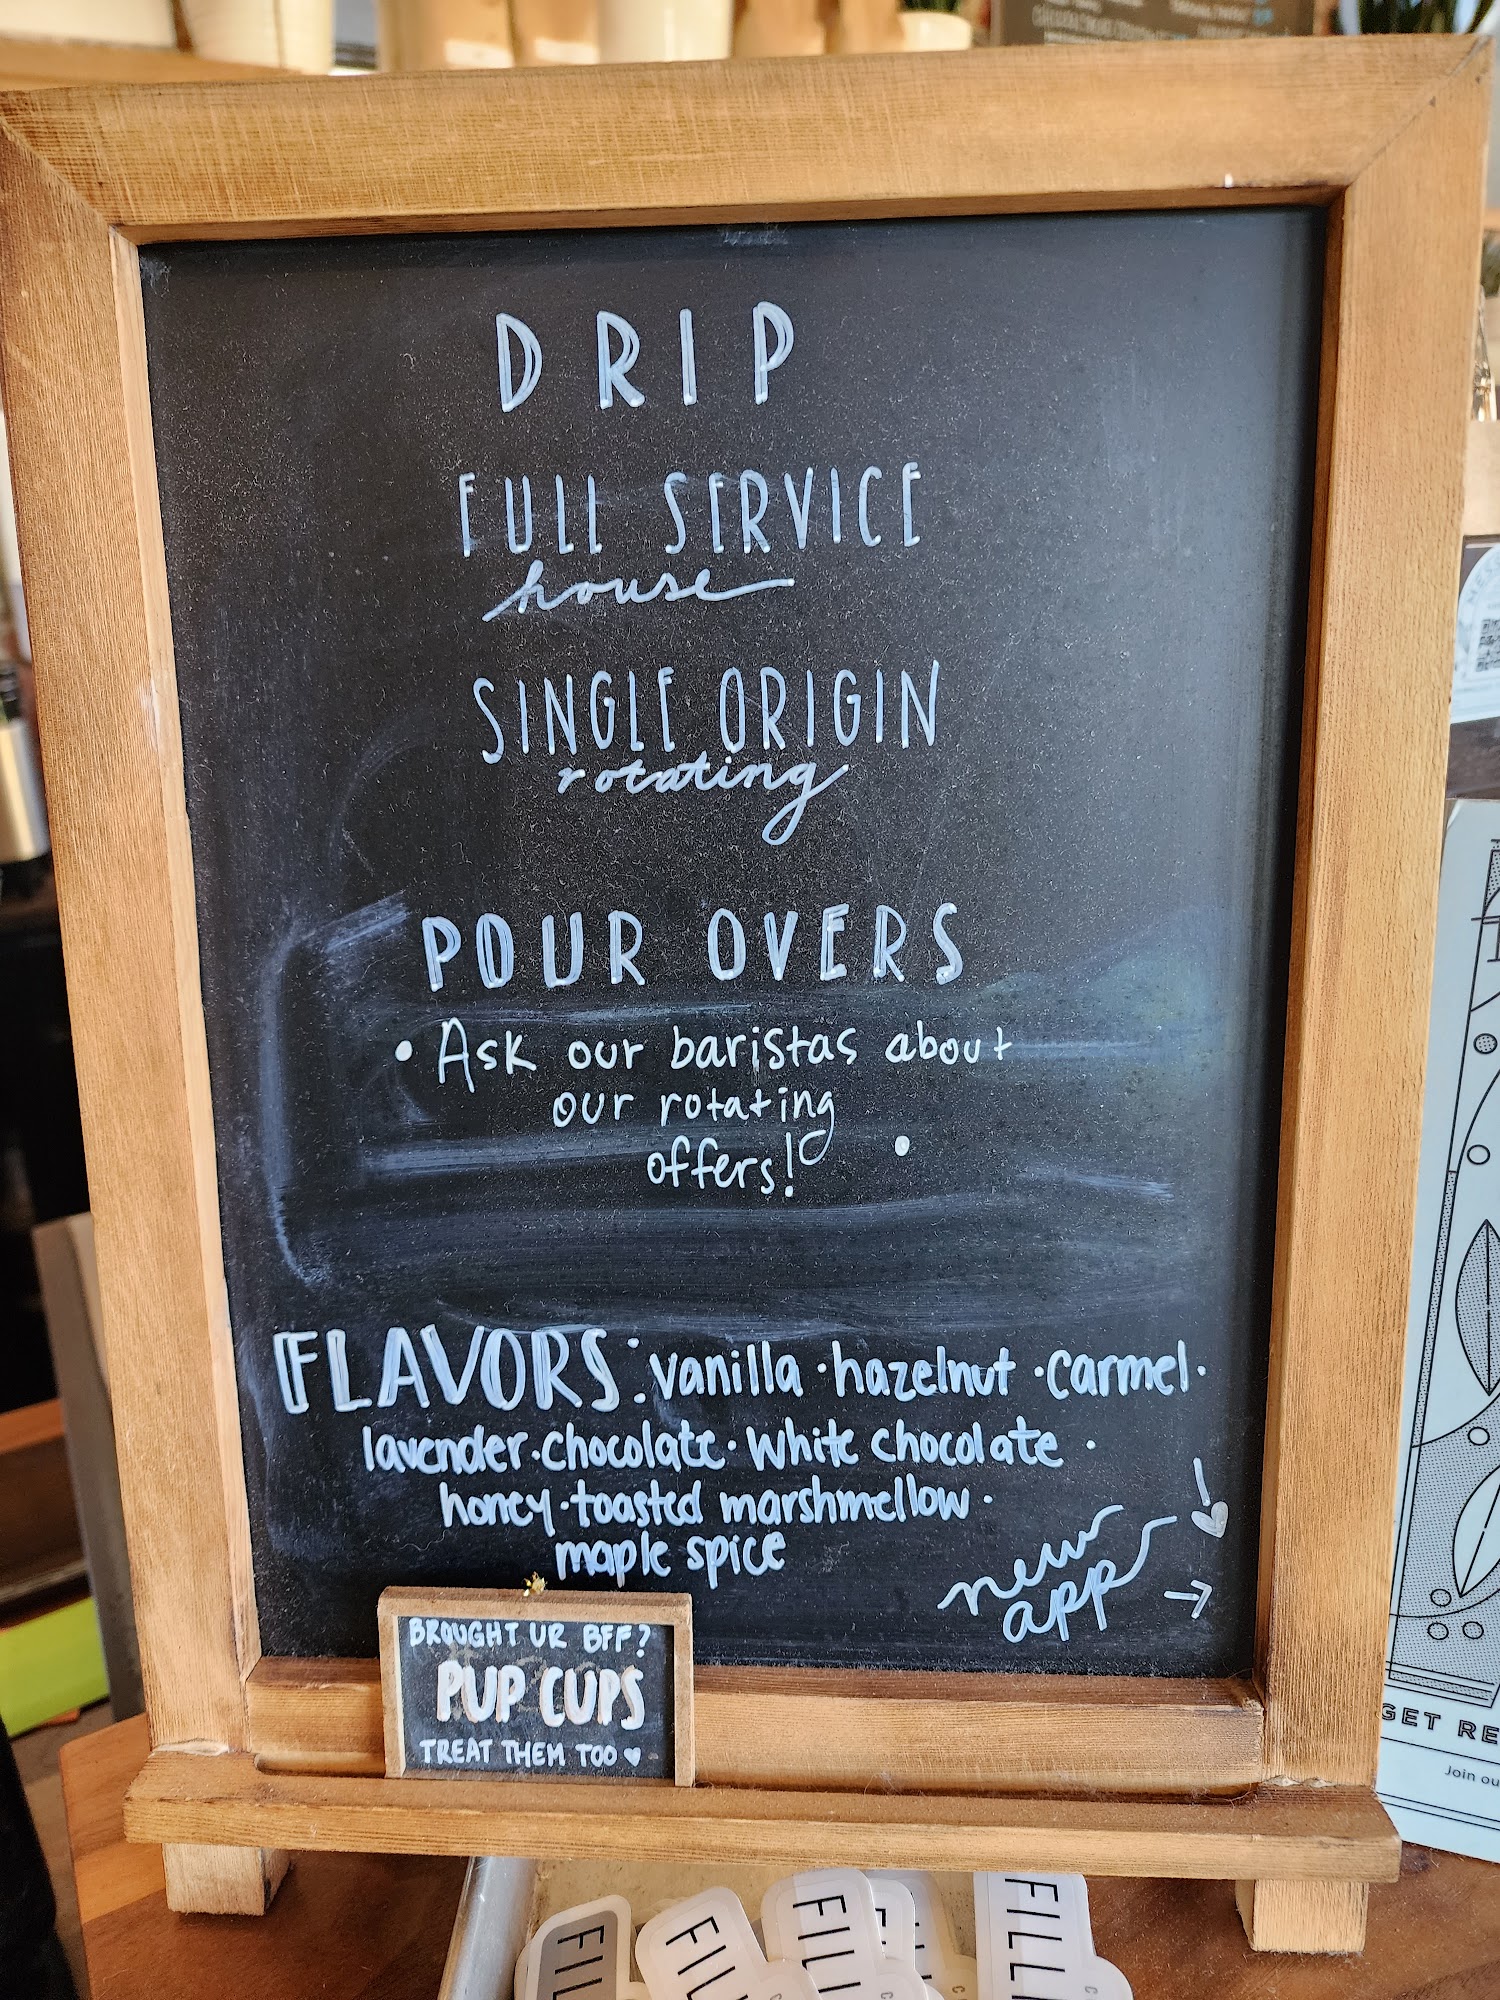 DRIP
FULL SERVICE
house
SINGLE ORIGIN
rotating
POUR OVERS
• Ask our baristas about
our rotating
offers! •
FLAVORS: vanilla · hazelnut · carmel ·
lavender · chocolate · white chocolate ·
honey · toasted marshmellow ·
maple spice
new
app →
BROUGHT UR BFF?
PUP CUPS
TREAT THEM TOO ♥
GET RE
Join ou
FIL
FILL
FILL
FILL